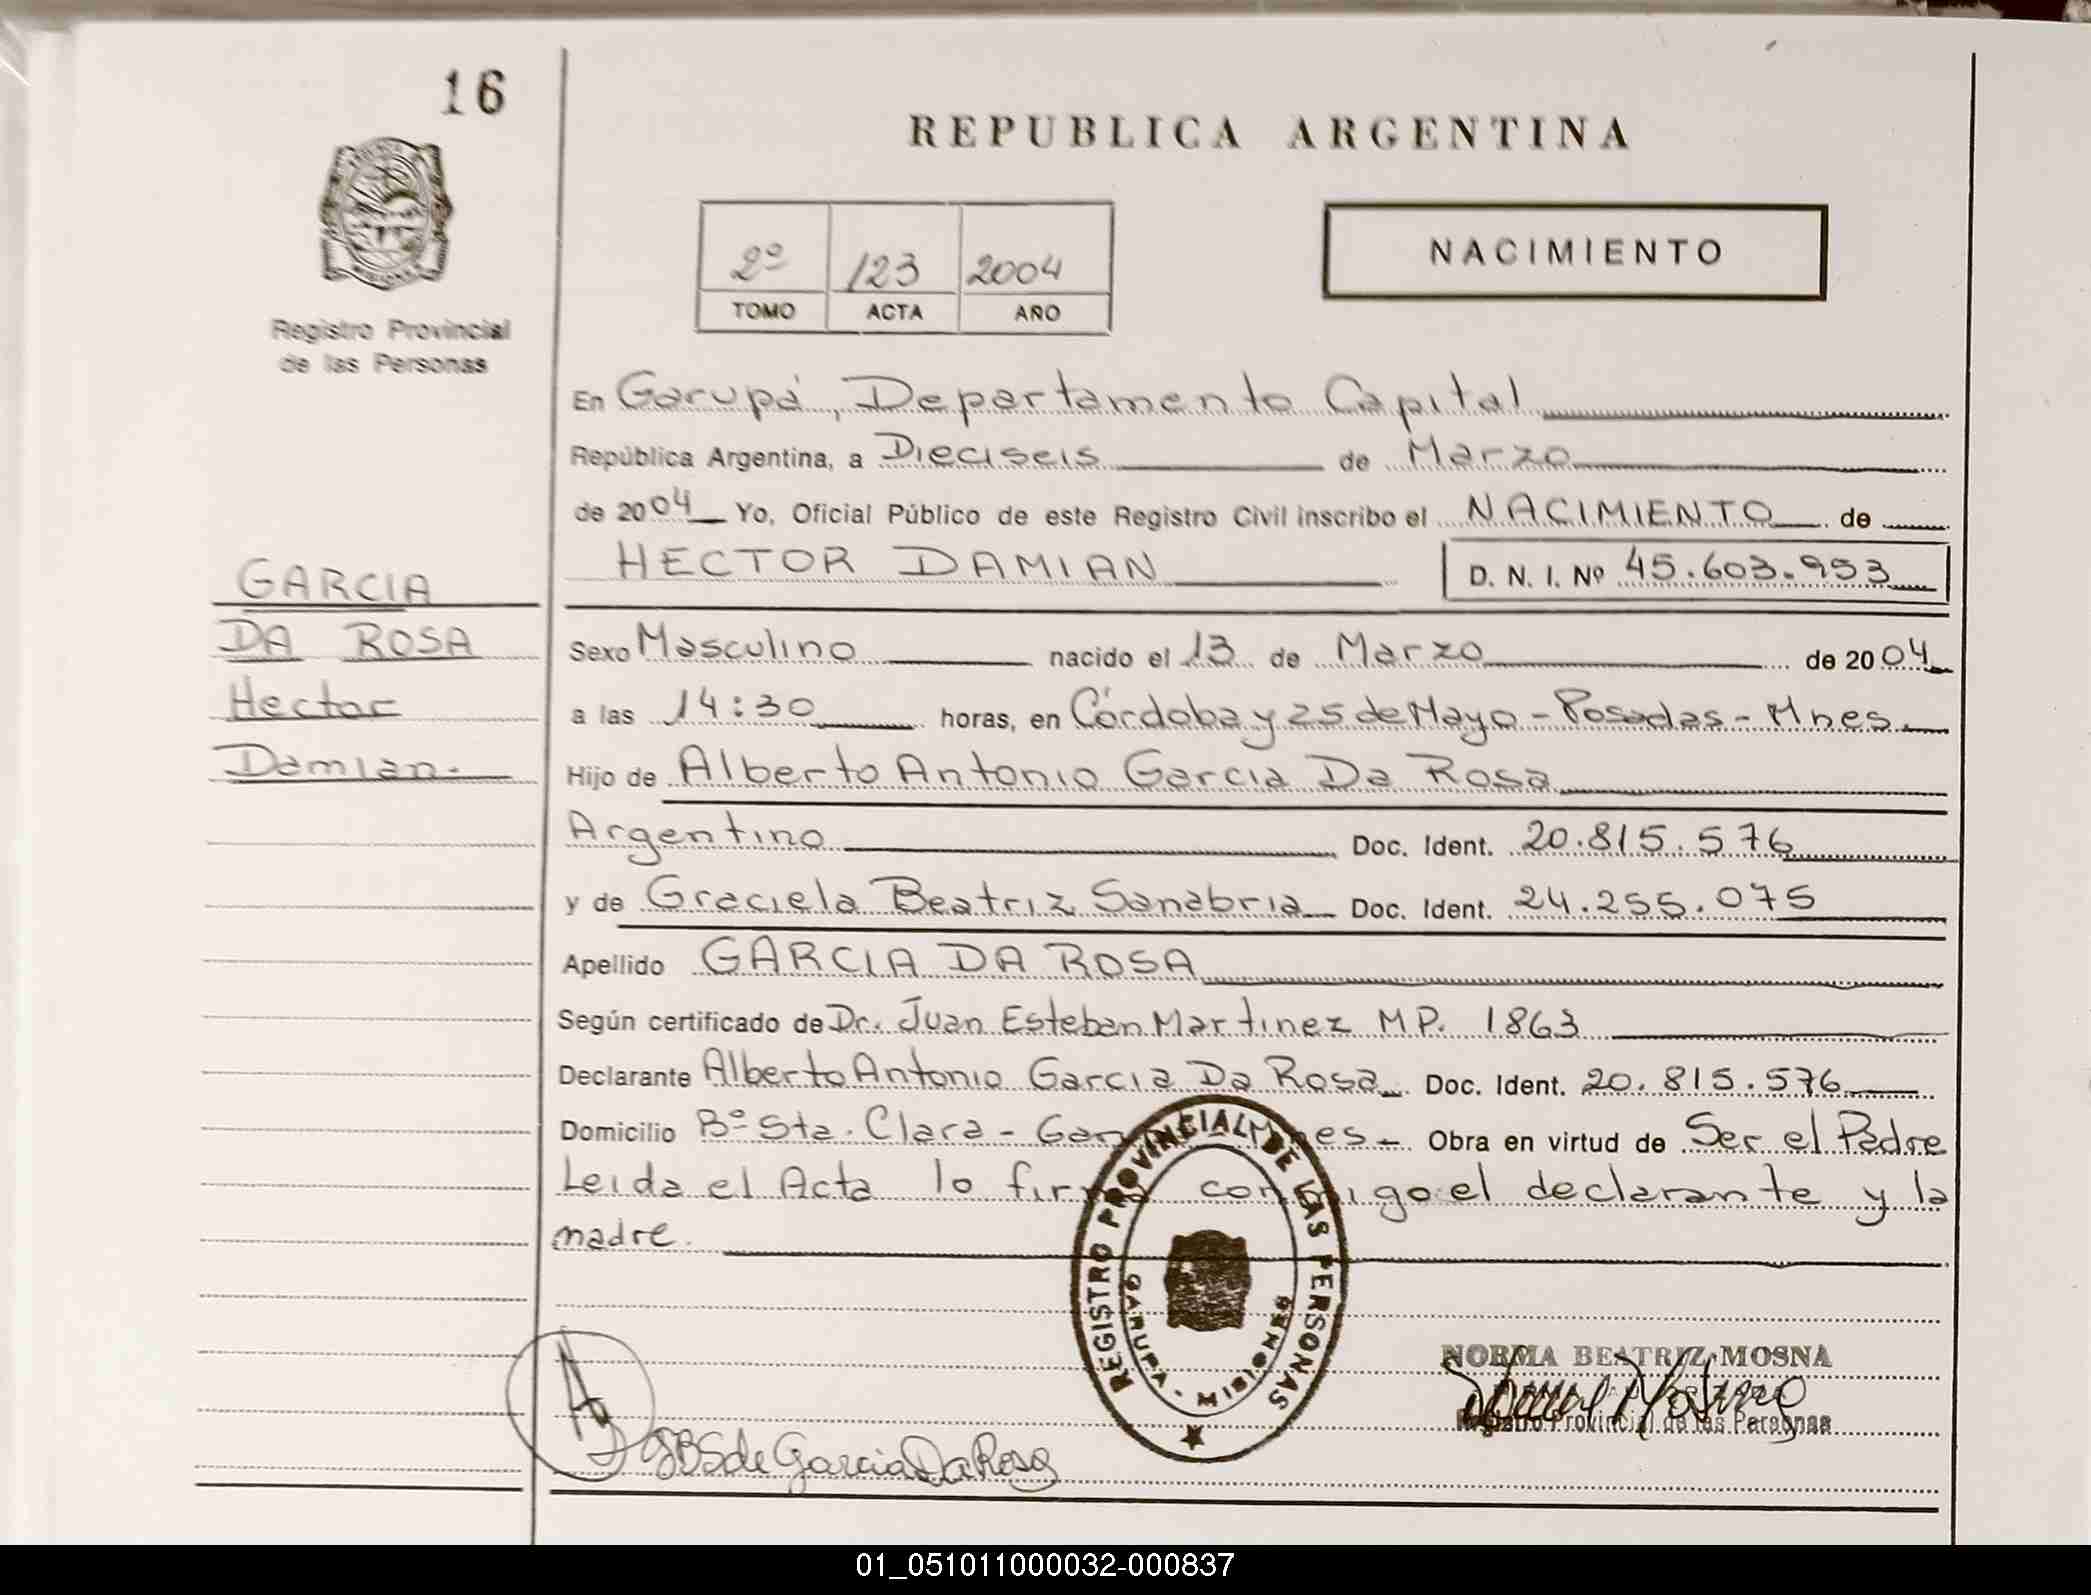 16
REPUBLICA ARGENTINA
Registro Provincial
de las Personas
2º 123 2004
TOMO ACTA AÑO
NACIMIENTO
En Garupá, Departamento Capital
República Argentina, a Dieciseis de Marzo
de 2004 Yo, Oficial Público de este Registro Civil inscribo el NACIMIENTO de
HECTOR DAMIAN D. N. I. Nº 45.603.953
GARCIA
DA ROSA
Hector
Damian.
Sexo Masculino nacido el 13 de Marzo de 2004
a las 14:30 horas, en Córdoba y 25 de Mayo - Posadas - Mnes.
Hijo de Alberto Antonio Garcia Da Rosa
Argentino Doc. Ident. 20.815.576
y de Graciela Beatriz Sanabria Doc. Ident. 24.255.075
Apellido GARCIA DA ROSA
Según certificado de Dr. Juan Esteban Martinez M.P. 1863
Declarante Alberto Antonio Garcia Da Rosa Doc. Ident. 20.815.576
Domicilio Bº Sta. Clara - Obra en virtud de Ser el Padre
Leida el Acta lo firma conmigo el declarante y la
madre.
REGISTRO PROVINCIAL DE LAS PERSONAS
GARUPA - MISIONES
NORMA BEATRIZ MOSNA
Registro Provincial de las Personas
GBS de Garcia Da Rosa
01_051011000032-000837